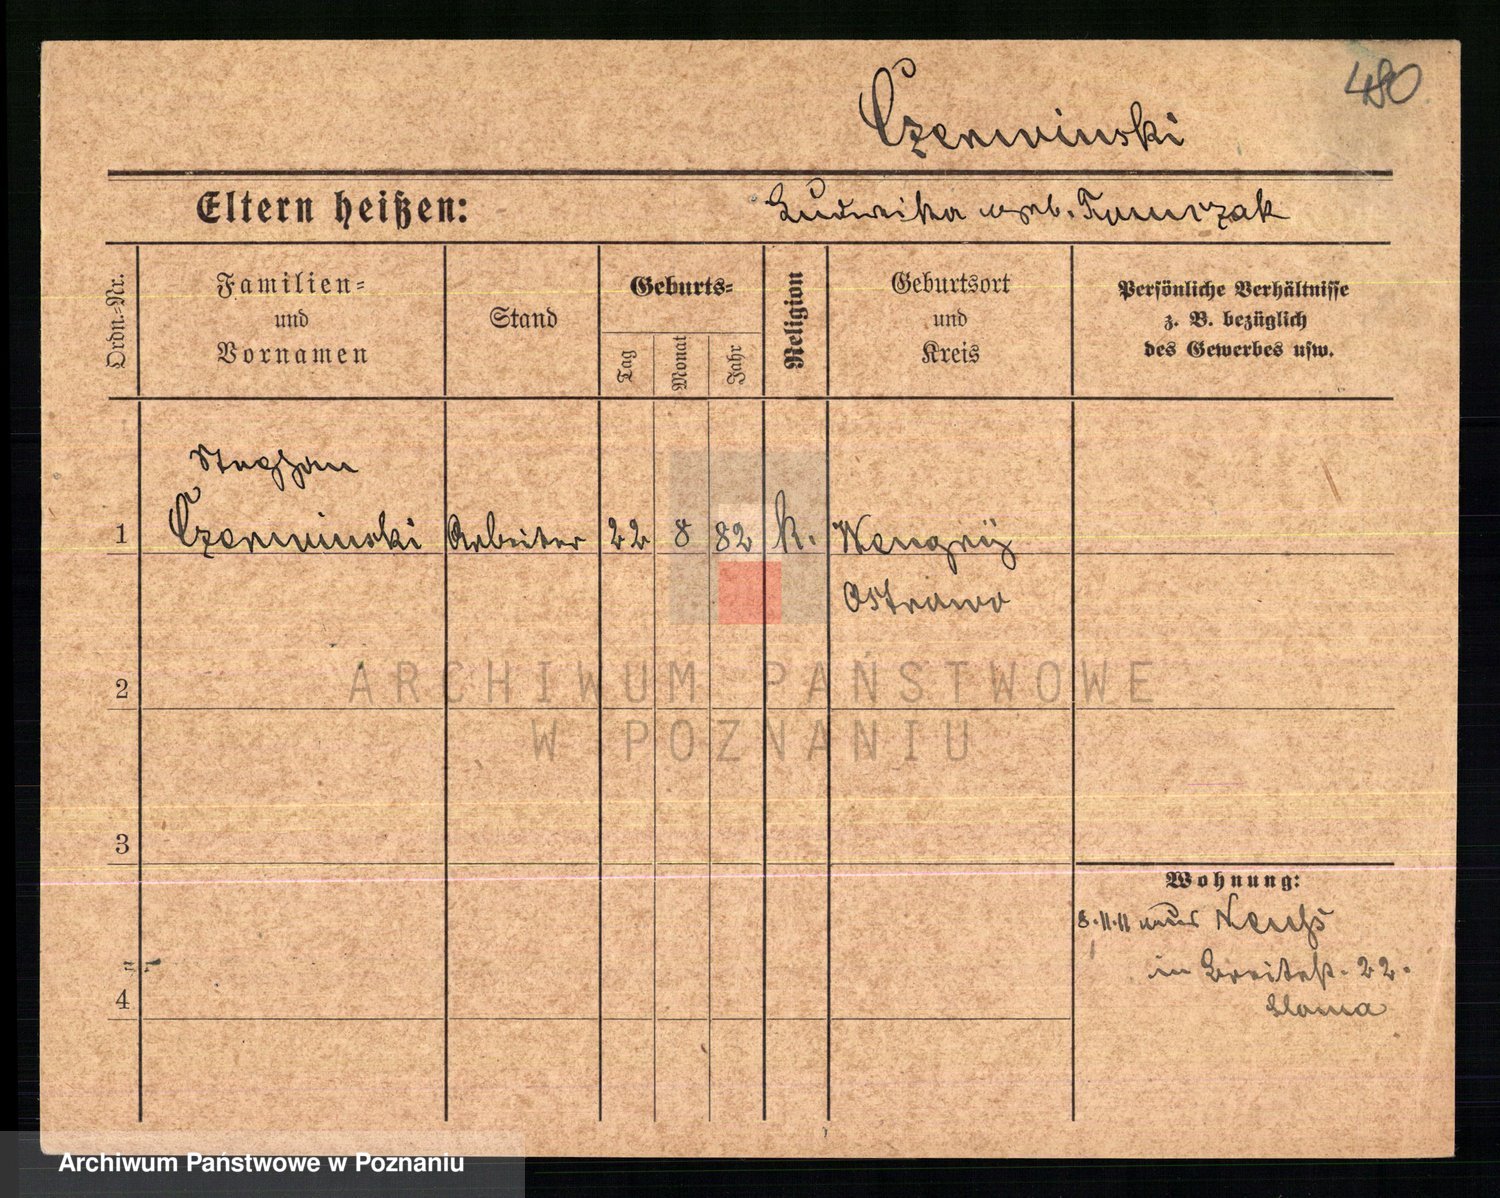 480
Czerwinski
Eltern heißen: Ludwika geb. Tomczak
Ordn.-Nr.
Familien-
und
Vornamen
Stand
Geburts-
Tag
Monat
Jahr
Religion
Geburtsort
und
Kreis
Persönliche Verhältnisse
z. B. bezüglich
des Gewerbes usw.
Stephan
1 Czerwinski Arbeiter 22 8 82 k.
Ostrowo
2
ARCHIWUM PAŃSTWOWE
W POZNANIU
3
Wohnung:
8.11.11 aus
in Breitestr. 22.
4
Archiwum Państwowe w Poznaniu